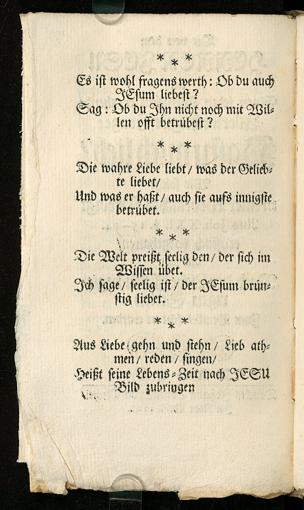 * * *
Es ist wohl fragens werth: Ob du auch
JEsum liebest?
Sag: Ob du Ihn nicht noch mit Wil-
len offt betrübest?
* * *
Die wahre Liebe liebt/ was der Gelieb-
te liebet/
Und was er haßt/ auch sie aufs innigste
betrübet.
* * *
Die Welt preißt seelig den/ der sich im
Wissen übet.
Ich sage/ seelig ist/ der JEsum brün-
stig liebet.
* * *
Aus Liebe gehn und stehn/ Lieb ath-
men/ reden/ singen/
Heißt seine Lebens-Zeit nach JESU
Bild zubringen